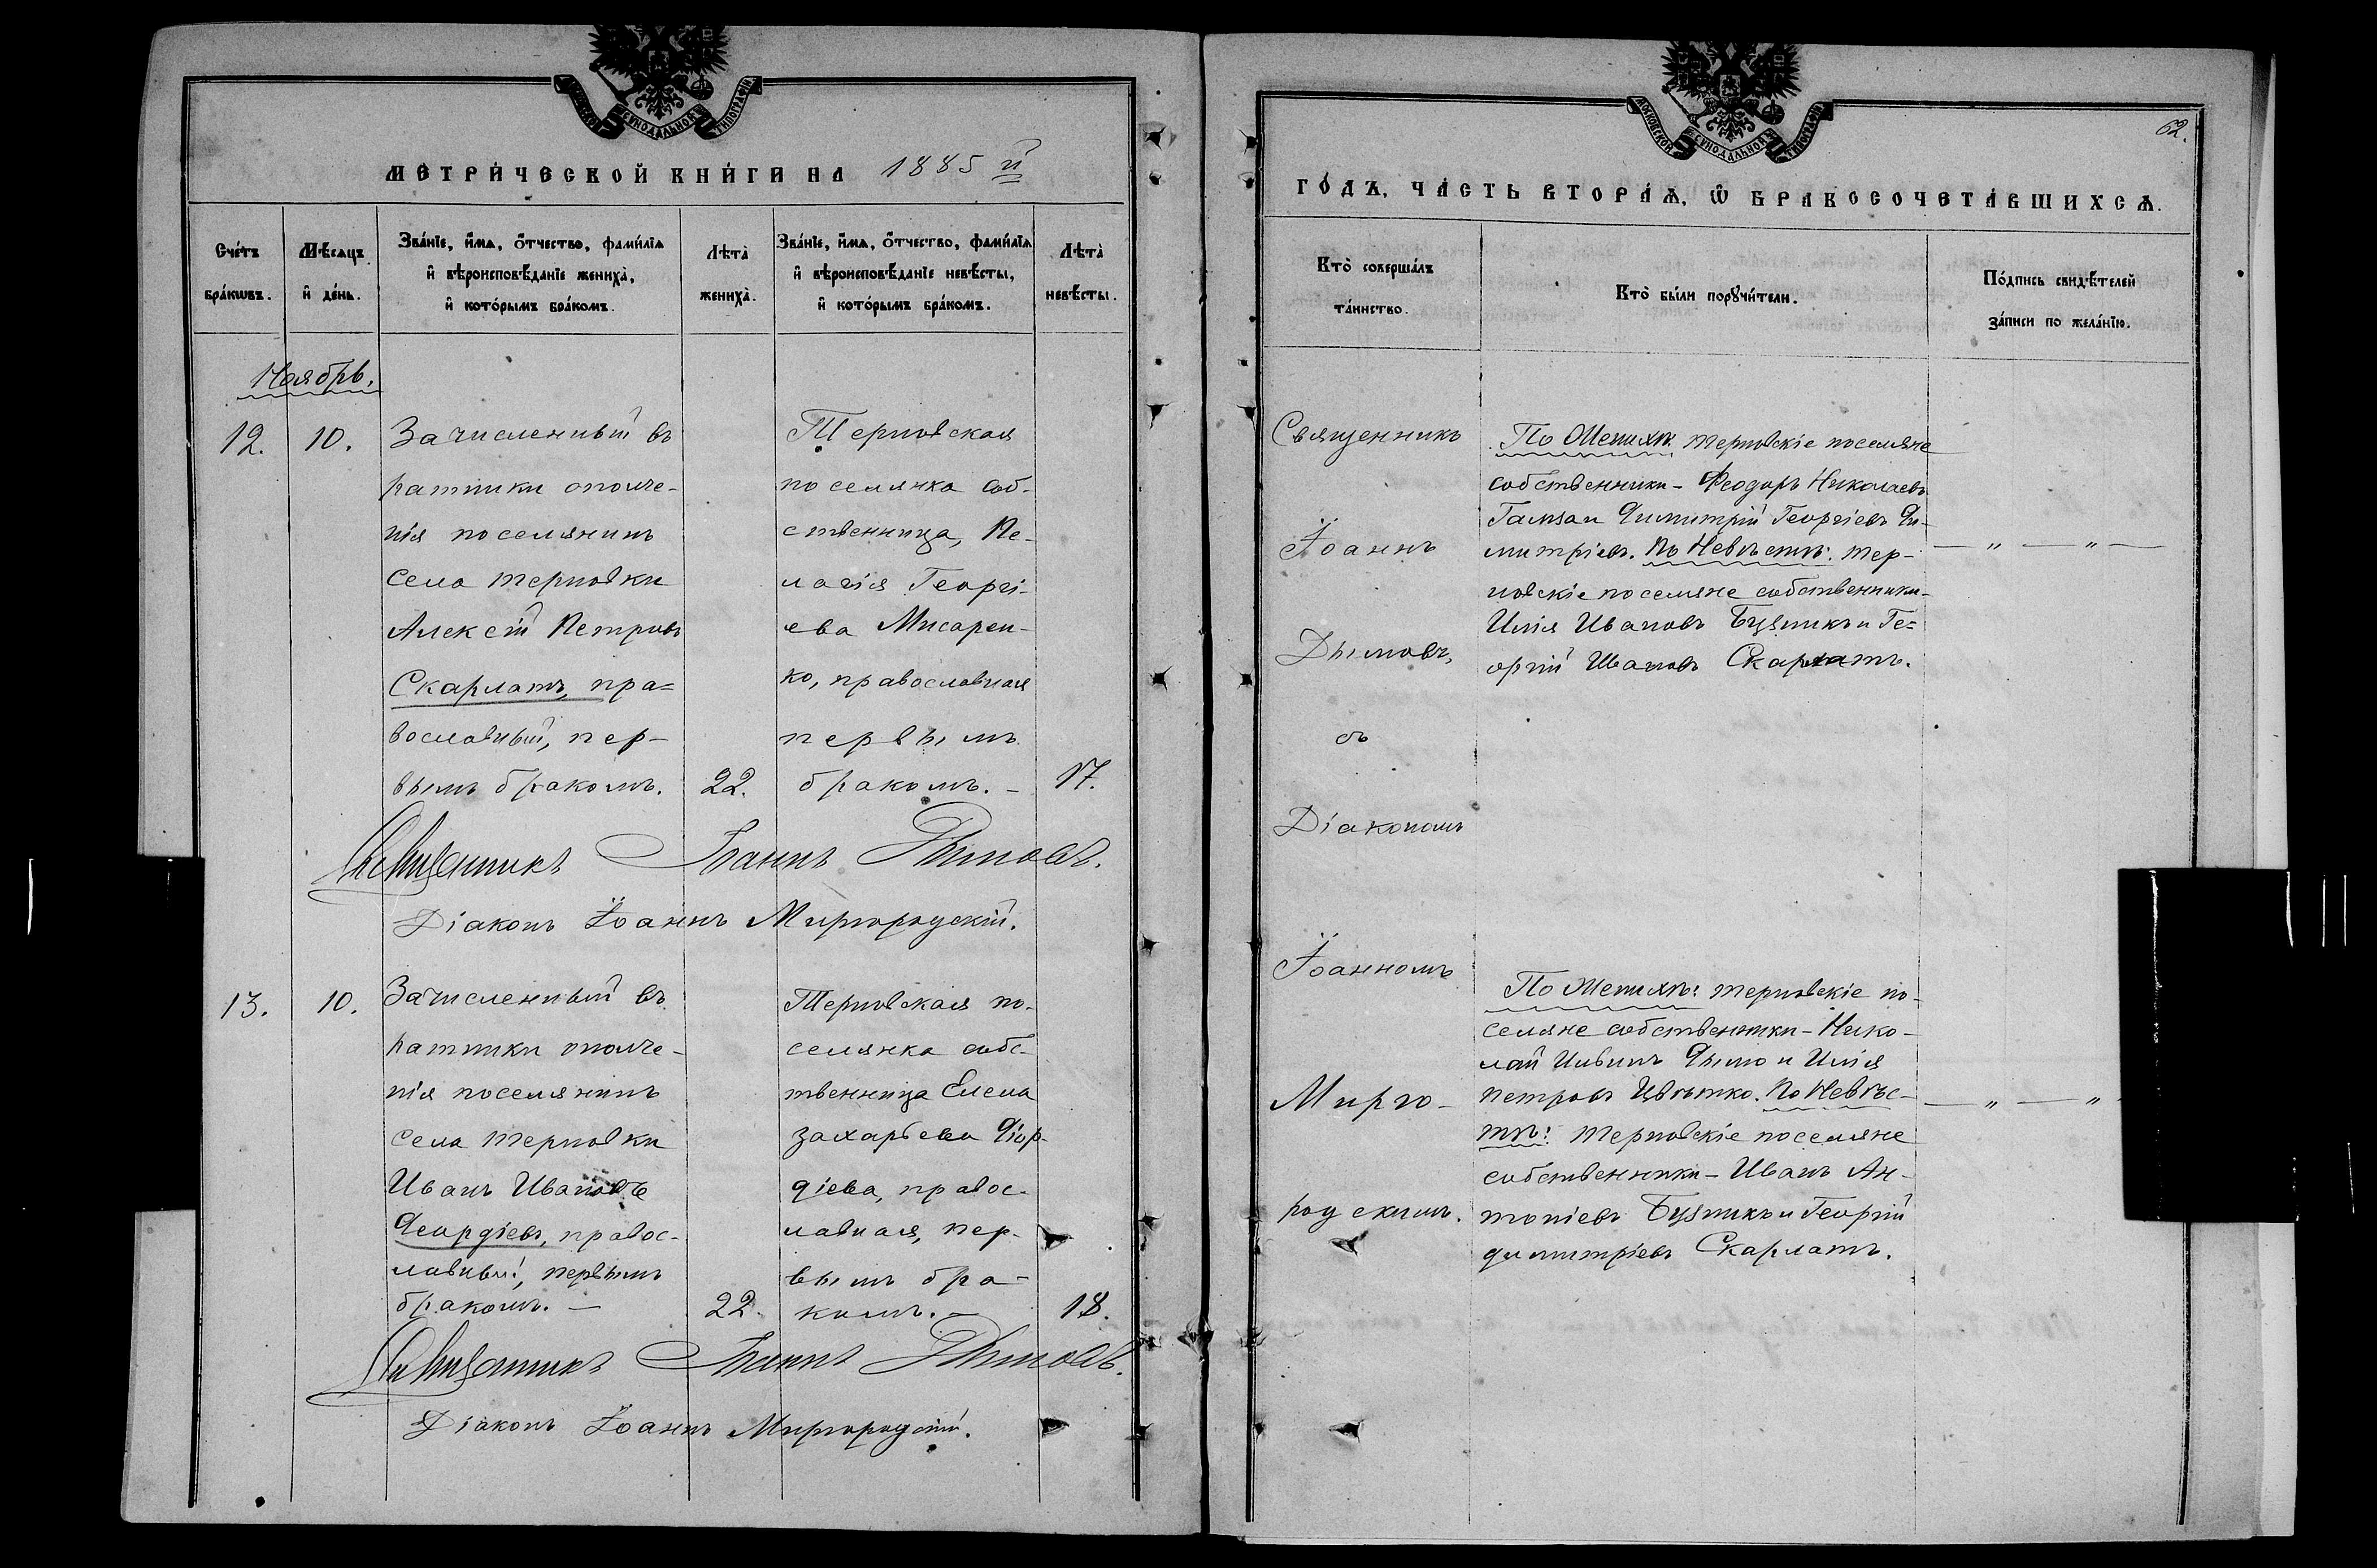 МОСКОВСКОЙ СУНОДАЛЬНОЙ ТИПОГРАФІИ
МЕТРИ́ЧЕСКОЙ КНИ́ГИ НА 1885 й
Сче́тъ бра́кωвъ.
Мѣ́сяцъ и҆ де́нь.
Зва́нїе, и҆́мѧ, ѻ҆́тчество, фами́лїѧ
и҆ вѣроисповѣ́данїе женихà,
и҆ кото́рымъ бра́комъ.
Лѣ́та женихà.
Зва́нїе, и҆́мѧ, ѻ҆́тчество, фами́лїѧ
и҆ вѣроисповѣ́данїе невѣ́сты,
и҆ кото́рымъ бра́комъ.
Лѣ́та невѣ́сты.
Ноябрь.
12.
10.
Зачисленный въ
ратники ополче-
нія поселянинъ
села Терновки
Алексѣй Петровъ
Скарлатъ, пра=
вославный, пер-
вымъ бракомъ.
22.
Терновская
поселянка соб-
ственница, Пе-
лагія Георгі-
ева Мисарен-
ко, православная
первымъ
бракомъ. –
17.
Священникъ Іоаннъ Дымовъ.
Діаконъ Іоаннъ Миргородскій.
13.
10.
Зачисленный въ
ратники ополче-
нія поселянинъ
села Терновки
Иванъ Ивановъ
Деордіевъ, правос-
лавный, первымъ
бракомъ. –
22.
Терновская по-
селянка собс-
твенница Елена
Захарьева Діор-
діева, правос-
лавная, пер-
вымъ бра-
комъ. –
18.
Священникъ Іоаннъ Дымовъ.
Діаконъ Іоаннъ Миргородскій.
МОСКОВСКОЙ СУНОДАЛЬНОЙ ТИПОГРАФІИ
62.
ГО́ДЪ, ЧА́СТЬ ВТОРА́Ѧ, Ѽ БРАКОСОЧЕТА́ВШИХСѦ.
Кто̀ соверша́лъ
та́инство.
Кто̀ бы́ли порꙋчи́тели.
По́дпись свидѣ́телей
за́писи по жела́нїю.
Священникъ
Іоаннъ
Дымовъ,
съ
Діакономъ
Іоанномъ
Мирго-
родскимъ.
По Женихѣ: терновскіе поселяне
собственники – Феодоръ Николаевъ
Гамза и Димитрій Георгіевъ Ди-
митріевъ. По Невѣстѣ: тер-
новскіе поселяне собственники –
Илія Ивановъ Бузникъ и Ге=
оргій Ивановъ Скарлатъ.
— „ — „ —
По Женихѣ: терновскіе по-
селяне собственники – Нико-
лай Ильинъ Дымо и Илія
Петровъ Цвѣтко. По Невѣс-
тѣ: терновскіе поселяне
собственники – Иванъ Ан-
тоніевъ Бузникъ и Георгій
Димитріевъ Скарлатъ.
— „ — „